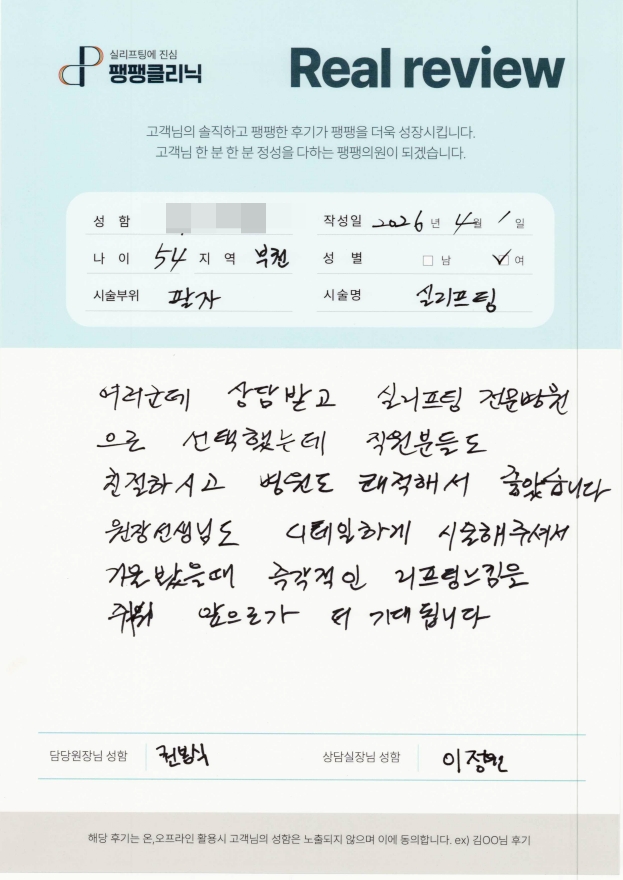 실리프팅에 진심
팽팽클리닉
Real review
고객님의 솔직하고 팽팽한 후기가 팽팽을 더욱 성장시킵니다.
고객님 한 분 한 분 정성을 다하는 팽팽의원이 되겠습니다.
성 함 작성일 2026 년 4 월 1 일
나 이 54 지 역 부천 성 별 남 여
시술부위 팔자 시술명 실리프팅
여러군데 상담받고 실리프팅 전문병원
으로 선택했는데 직원분들도
친절하시고 병원도 쾌적해서 좋았습니다
원장선생님도 디테일하게 시술해주셔서
거울봤을때 즉각적인 리프팅느낌을
앞으로가 더 기대됩니다
담당원장님 성함 권봉식 상담실장님 성함 이정현
해당 후기는 온,오프라인 활용시 고객님의 성함은 노출되지 않으며 이에 동의합니다. ex) 김OO님 후기